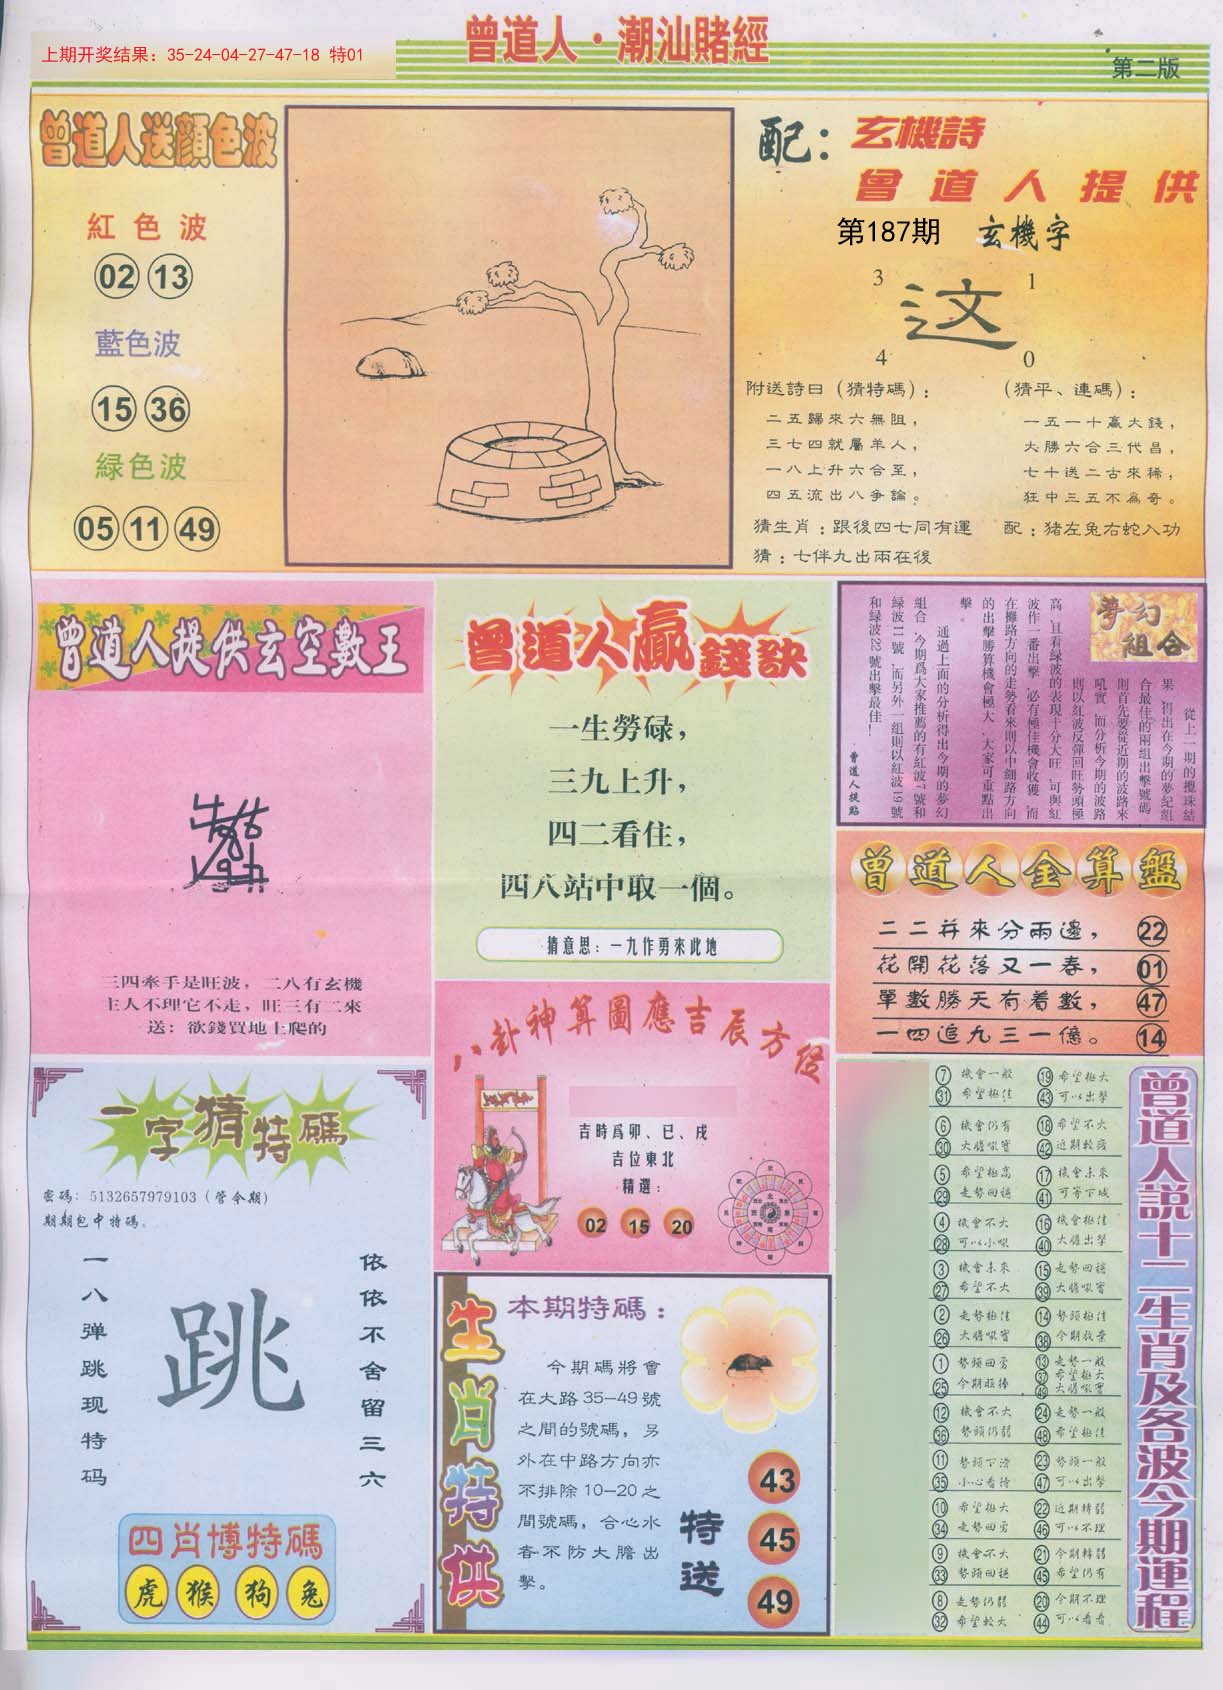 上期开奖结果：35-24-04-27-47-18 特01
曾道人·潮汕賭經
第二版
曾道人送顏色波
紅色波
02 13
藍色波
15 36
緑色波
05 11 49
配：玄機詩
曾道人提供
第187期 玄機字
3 1
这
4 0
附送詩曰（猜特碼）：
二五歸來六無阻，
三七四就屬羊人，
一八上升六合至，
四五流出八爭論。
（猜平、連碼）：
一五一十贏大錢，
大勝六合三代昌，
七十送二古來稀，
狂中三五不為奇。
猜生肖：跟後四七同有運
配：豬左兔右蛇入功
猜：七伴九出兩在後
曾道人提供玄空數王
三四牽手是旺波，二八有玄機
主人不理它不走，旺三有二來
送：欲錢買地上爬的
曾道人贏錢訣
一生勞碌，
三九上升，
四二看住，
四八站中取一個。
猜意思：一九作勇來此地
夢幻組合
從上一期的攪珠結
果，得出在今期的夢紀組
合最佳的兩組出擊號碼
則首先要從近期的波路來
吼實，而分析今期的波路
則以紅波反彈回旺勢頭極
高，且看緑波的表現十分大旺，可與紅
波作一番出擊，必有極佳機會收獲，而
在攤路方向的走勢看來則以中細路方向
的出擊勝算機會極大，大家可重點出
擊
通過上面的分析得出今期的夢幻
組合，今期爲大家推薦的有紅波1號和
緑波11號，而另外一組則以紅波19號
和緑波22號出擊最佳！
曾道人提點
曾道人金算盤
二二并來分兩邊， 22
花開花落又一春， 01
單數勝天有着數， 47
一四追九三一億。 14
八卦神算圖應吉辰方位
吉時爲卯、巳、戌
吉位東北
精選：
02 15 20
一字猜特碼
密碼：5132657979103（管令期）
期期包中特碼。
一八弹跳现特码
跳
依依不舍留三六
四肖博特碼
虎 猴 狗 兔
生肖特供
本期特碼：
今期碼將會
在大路35-49號
之間的號碼，另
外在中路方向亦
不排除10-20之
間號碼，合心水
者不防大膽出
擊。
特送
43
45
49
曾道人説十二生肖及各波今期運程
7 機會一般 19 希望極大
31 希望極佳 43 可以出擊
6 機會仍有 18 希望不大
30 大膽吼實 42 近期較疲
5 希望極高 17 機會未來
29 走勢回穩 41 可等下城
4 機會不大 16 機會極佳
28 可以小吼 40 大膽出擊
3 機會未來 15 走勢回穩
27 希望不大 39 大膽吼實
2 走勢極佳 14 勢頭極佳
26 大膽吼實 38 今期放棄
1 勢頭回勇 13 走勢一般
37 希望極大
25 今期旺捧 49 大膽吼實
12 機會不大 24 走勢一般
36 勢頭仍弱 48 希望極佳
11 勢頭下滑 23 勢頭一般
35 小心看待 47 可以出擊
10 希望極大 22 近期轉弱
34 走勢回勇 46 可以不理
9 機會不大 21 今期轉弱
33 勢頭回穩 45 希望仍有
8 走勢仍弱 20 今期不理
32 希望較大 44 可以看看